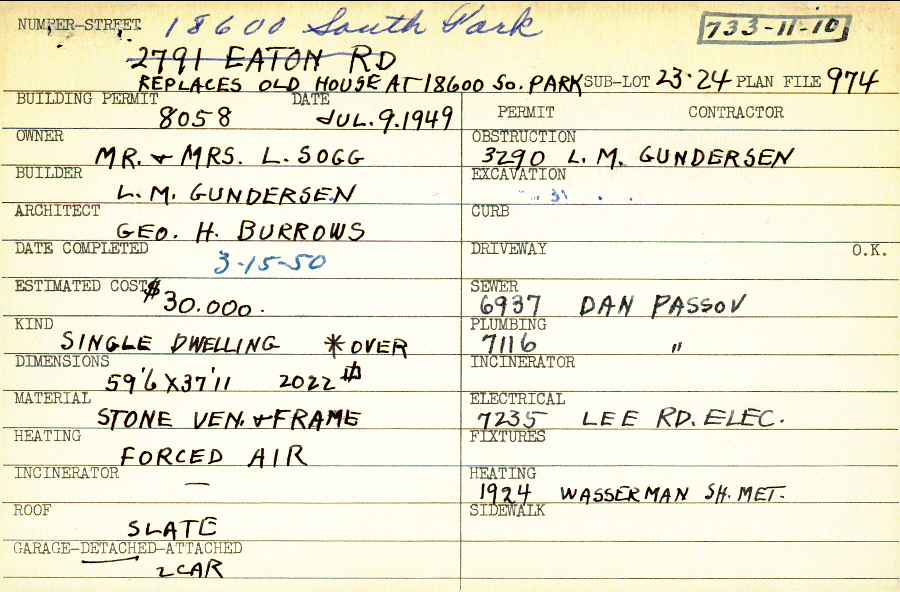 NUMBER-STREET 18600 South Park 733-11-10
2791 EATON RD
REPLACES OLD HOUSE AT 18600 SO. PARK SUB-LOT 23·24 PLAN FILE 974
BUILDING PERMIT DATE
8058 JUL.9.1949
OWNER
MR. & MRS. L. SOGG
BUILDER
L. M. GUNDERSEN
ARCHITECT
GEO. H. BURROWS
DATE COMPLETED
3-15-50
ESTIMATED COST
$30.000.
KIND
SINGLE DWELLING *OVER
DIMENSIONS
59'6 X 37'11 2022 #
MATERIAL
STONE VEN. & FRAME
HEATING
FORCED AIR
INCINERATOR
—
ROOF
SLATE
GARAGE-DETACHED-ATTACHED
2 CAR
PERMIT CONTRACTOR
OBSTRUCTION
3290 L. M. GUNDERSEN
EXCAVATION
CURB
DRIVEWAY O.K.
SEWER
6937 DAN PASSOV
PLUMBING
7116 "
INCINERATOR
ELECTRICAL
7235 LEE RD. ELEC.
FIXTURES
HEATING
1924 WASSERMAN SH. MET.
SIDEWALK